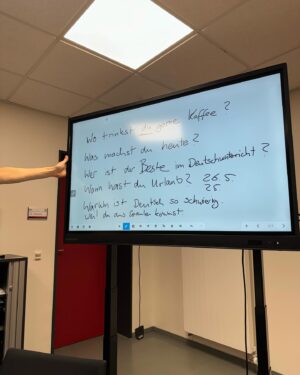 Wo trinkst du gerne Kaffee?
Was machst du heute?
Wer ist der Beste im Deutschunterricht?
Wann hast du Urlaub? 26.5.
25
Warum ist Deutsch so schwierig.
weil du aus kommst